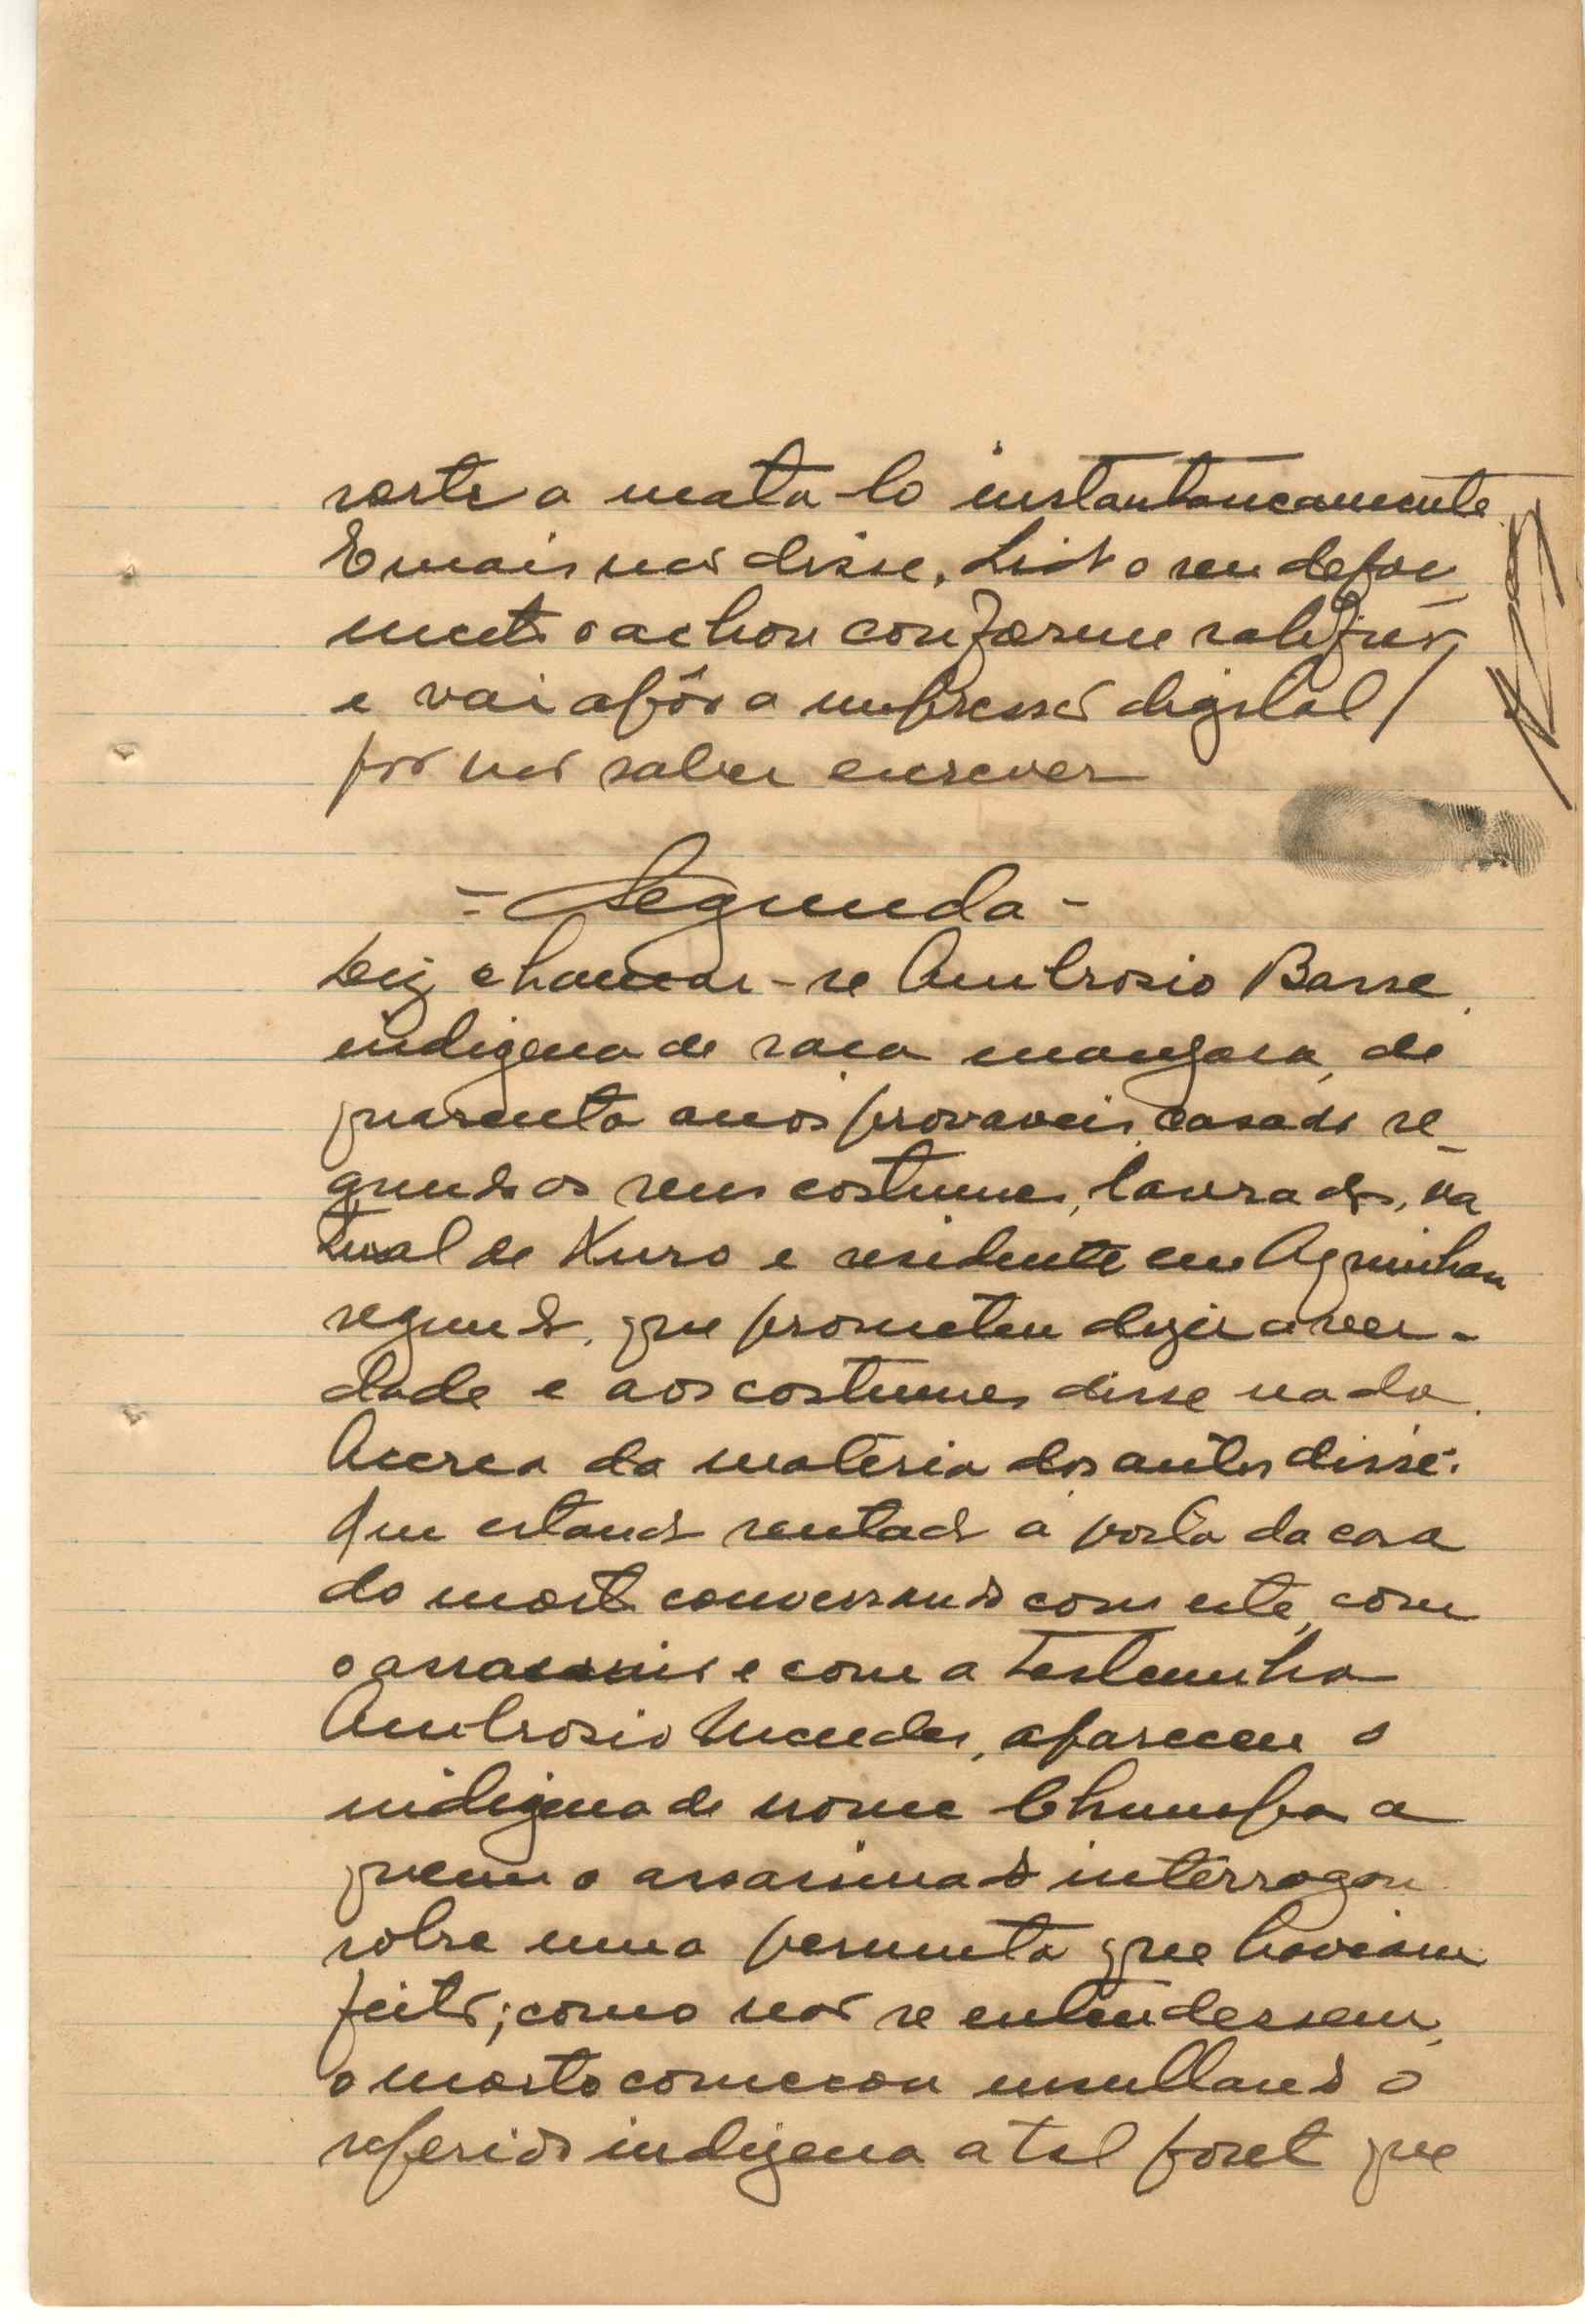 sorte a mata-lo instantaneamente.
E mais não disse. Lido o seu depoi
mento o achou conforme ratificou
e vai apôr a impressão digital
por não saber escrever
= Segunda -
Diz chamar-se Ambrosio Basse,
indigena de raça manjaca, de
quarenta anos provaveis, casado se_
gundo os seus costumes, lavrador, na
tural de Xuro e residente em
segundo, que prometeu dizer a ver-
dade e aos costumes disse nada.
Acerca da materia dos autos disse:
Que estando sentado á porta da casa
do morto conversando com este, com
o assassino e com a testemunha
Ambrosio Mendes, apareceu o
indigena de nome Chumpa a
quem o assassinado interrogou
sobre uma permuta que haviam
feito; como não se entendessem,
o morto começou insultando o
referido indigena a tal ponto que